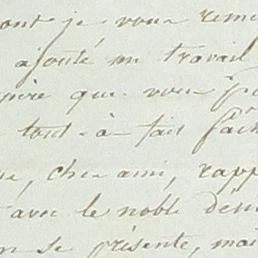 dont je vous remer
ajouté un travail
que vous p
tout-à-fait fâch
, cher ami, rapp
avec le noble dés
se présente, mai